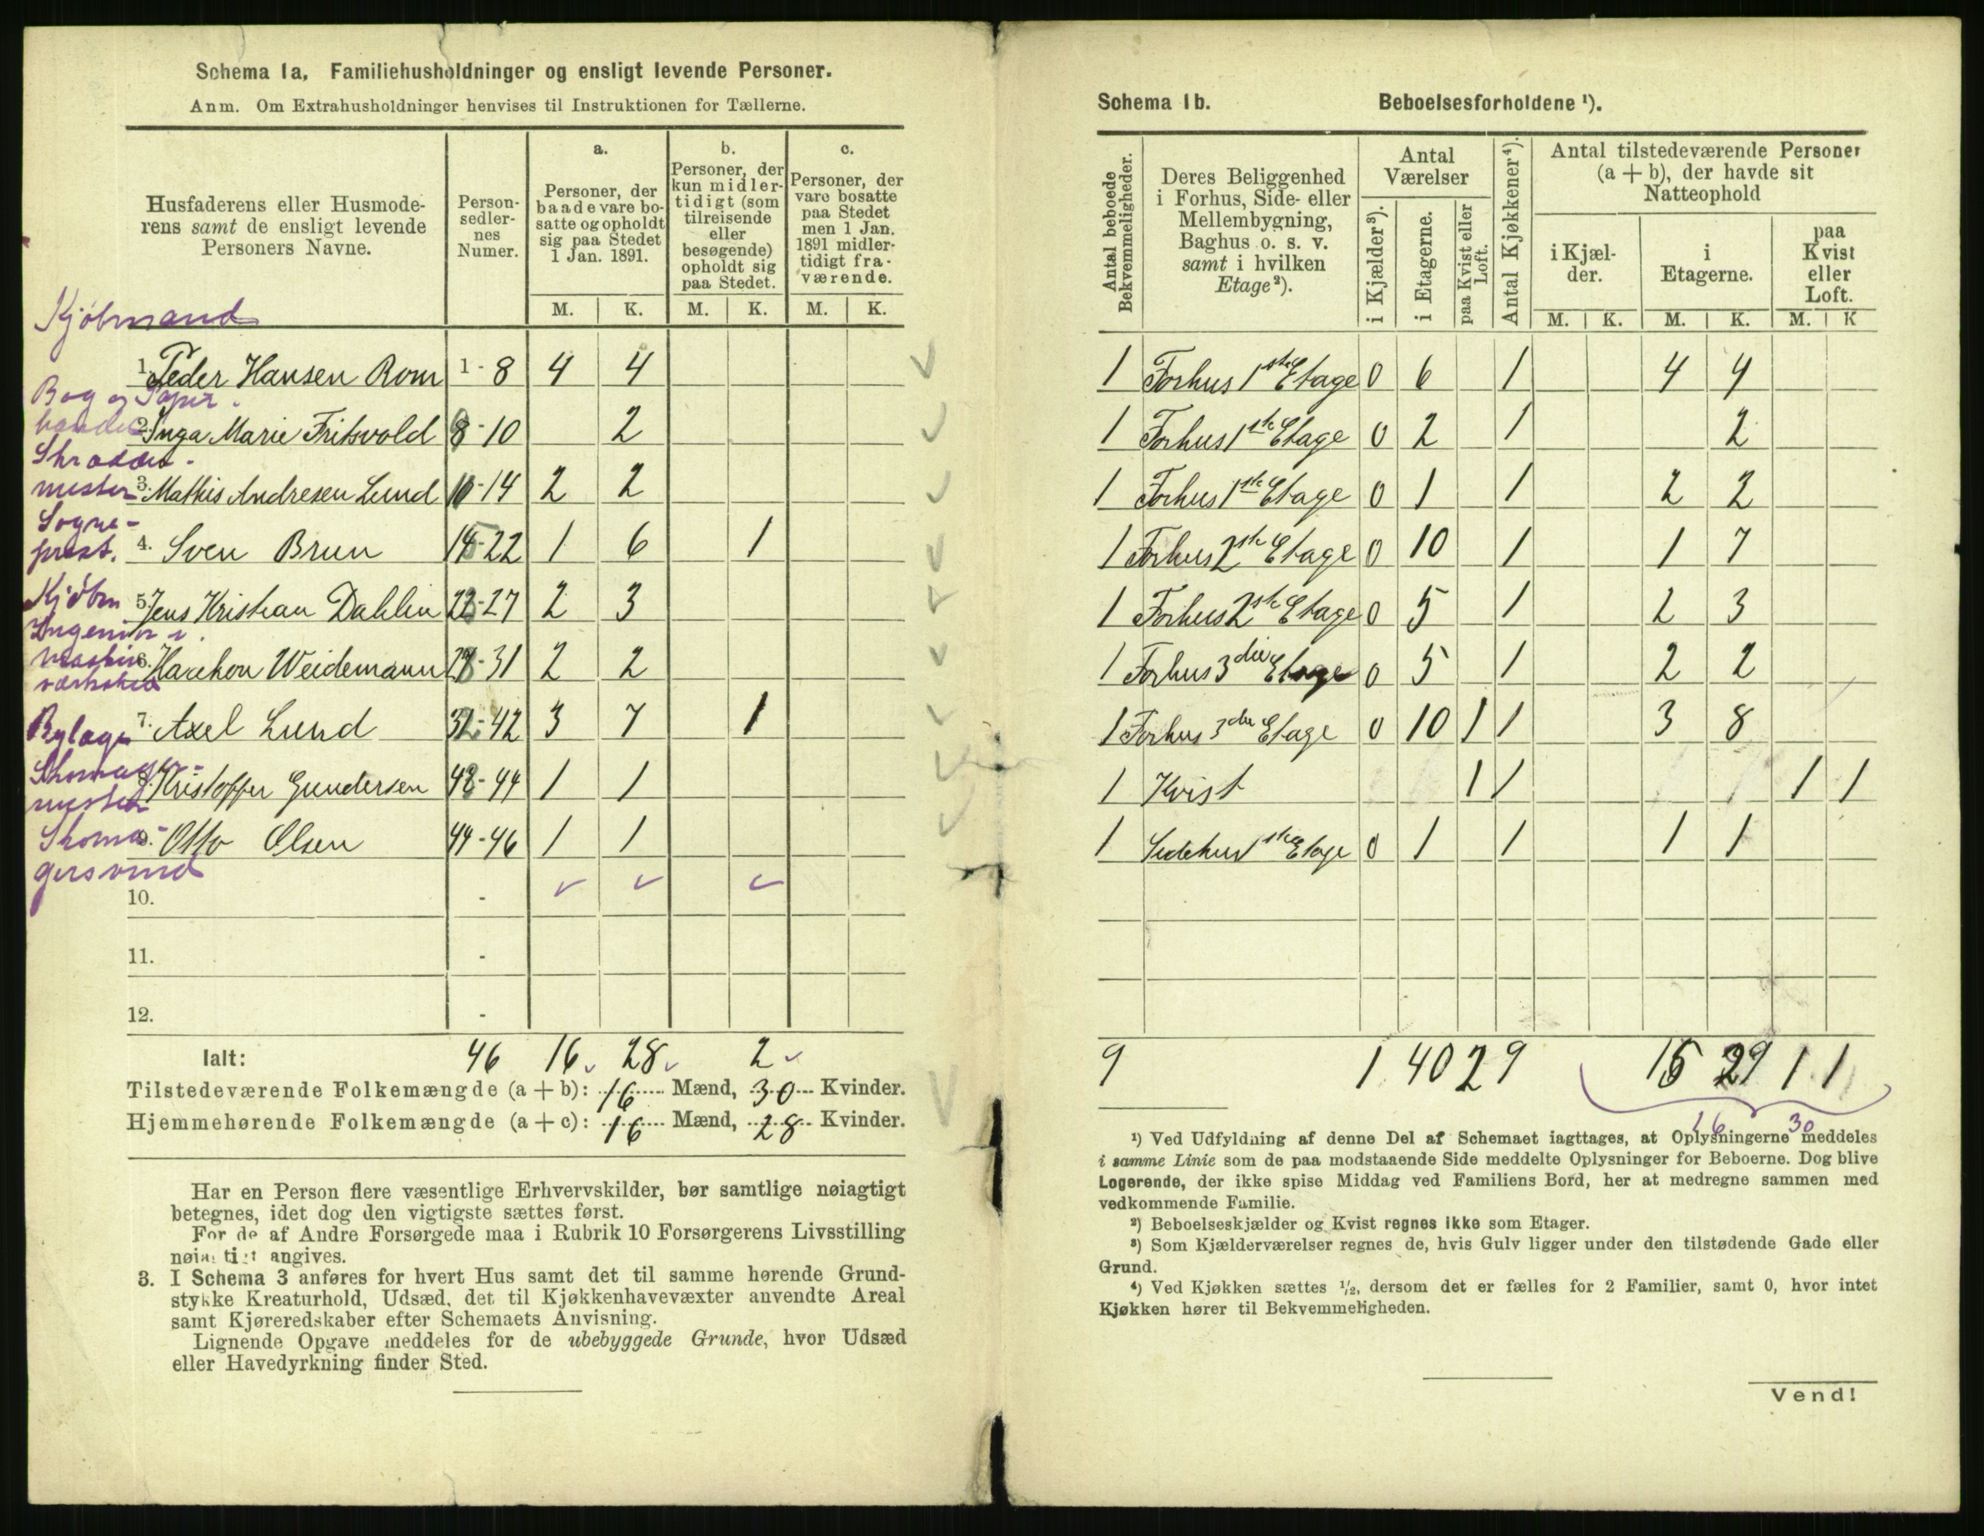 Schema 1a, Familiehusholdninger og ensligt levende Personer.
Anm. Om Extrahusholdninger henvises til Instruktionen for Tællerne.
Husfaderens eller Husmoderens samt de ensligt levende Personers Navne.
Personsedlernes Numer.
a. Personer, der baade vare bosatte og opholdt sig paa Stedet 1 Jan. 1891.
b. Personer, der kun midlertidigt (som tilreisende eller besøgende) opholdt sig paa Stedet.
c. Personer, der vare bosatte paa Stedet men 1 Jan. 1891 midlertidigt fraværende.
M. K. M. K. M. K.
Kjøbmand
1. Peder Hansen Rom 1-8 4 4
Bog og Papir
handel 2. Inga Marie Fritsvold 8-10 2
Skrædder-
mester 3. Mathis Andresen Lund 10-14 2 2
Sogne-
prest. 4. Sven Brun 15-22 1 6 1
Kjøbm 5. Jens Kristian Dahlin 23-27 2 3
Ingeniør i
6. Weidemann 28-31 2 2
Bylæge 7. Axel Lund 32-42 3 7 1
Skomager-
mester 8. Kristoffer Gundersen 43-44 1 1
Skoma- 9. Otto Olsen 44-46 1 1
gersvend
10. -
11. -
12. -
Ialt: 46 16 28 2
Tilstedeværende Folkemængde (a + b): 16 Mænd, 30 Kvinder.
Hjemmehørende Folkemængde (a + c): 16 Mænd, 28 Kvinder.
Har en Person flere væsentlige Erhvervskilder, bør samtlige nøiagtigt
betegnes, idet dog den vigtigste sættes først.
For de af Andre Forsørgede maa i Rubrik 10 Forsørgerens Livsstilling
nøiagtigt angives.
3. I Schema 3 anføres for hvert Hus samt det til samme hørende Grund-
stykke Kreaturhold, Udsæd, det til Kjøkkenhavevæxter anvendte Areal
samt Kjøreredskaber efter Schemaets Anvisning.
Lignende Opgave meddeles for de ubebyggede Grunde, hvor Udsæd
eller Havedyrkning finder Sted.
Schema 1b. Beboelsesforholdene ¹).
Antal beboede Bekvemmeligheder.
Deres Beliggenhed i Forhus, Side- eller Mellembygning, Baghus o. s. v. samt i hvilken Etage²).
Antal Værelser
i Kjælder³).
i Etagerne.
paa Kvist eller Loft.
Antal Kjøkkener⁴).
Antal tilstedeværende Personer (a + b), der havde sit Natteophold
i Kjælder.
i Etagerne.
paa Kvist eller Loft.
M. K. M. K. M. K
1 Forhus 1ste Etage 0 6 1 4 4
1 Forhus 1ste Etage 0 2 1 2
1 Forhus 1ste Etage 0 1 1 2 2
1 Forhus 2ste Etage 0 10 1 1 7
1 Forhus 2ste Etage 0 5 1 2 3
1 Forhus 3die Etage 0 5 1 2 2
1 Forhus 3die Etage 0 10 1 1 3 8
1 Kvist 1 1 1 1
1 Sidehus 1ste Etage 0 1 1 1 1
9 1 40 2 9 15 29 1 1
16 30
¹) Ved Udfyldning af denne Del af Schemaet iagttages, at Oplysningerne meddeles
i samme Linie som de paa modstaaende Side meddelte Oplysninger for Beboerne. Dog blive
Logerende, der ikke spise Middag ved Familiens Bord, her at medregne sammen med
vedkommende Familie.
²) Beboelseskjælder og Kvist regnes ikke som Etager.
³) Som Kjælderværelser regnes de, hvis Gulv ligger under den tilstødende Gade eller
Grund.
⁴) Ved Kjøkken sættes ¹/₂, dersom det er fælles for 2 Familier, samt 0, hvor intet
Kjøkken hører til Bekvemmeligheden.
Vend!